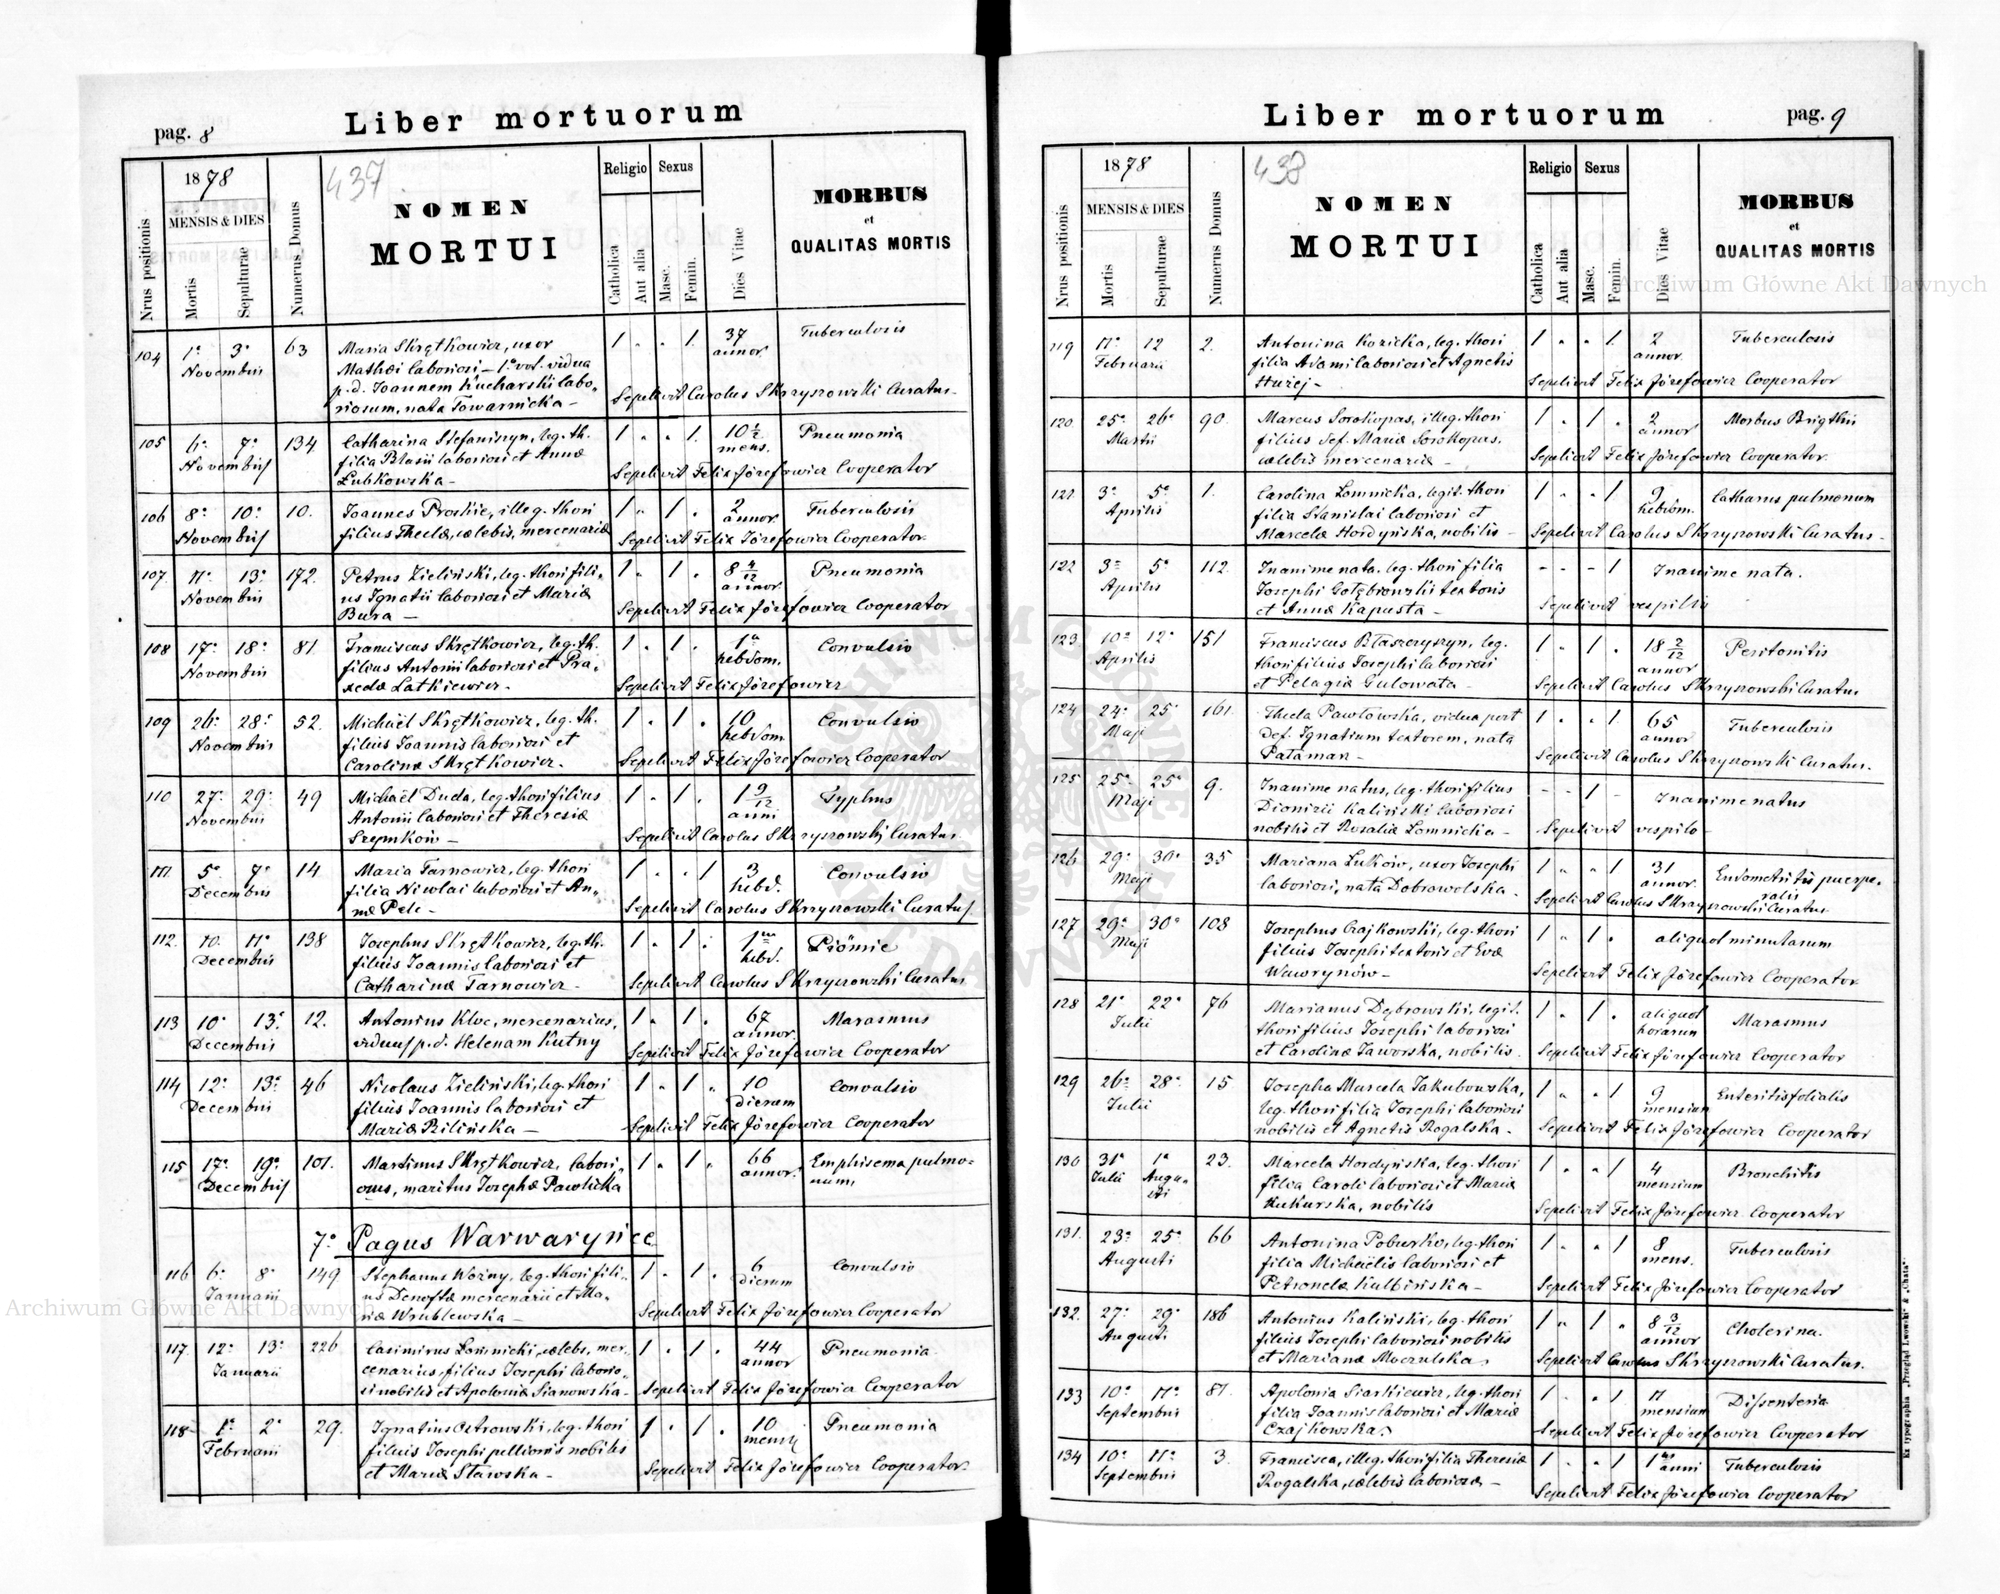 pag. 8
Liber mortuorum
Nrus positionis
1878
MENSIS & DIES
Mortis
Sepulturae
Numerus Domus
437
NOMEN
MORTUI
Religio
Catholica
Aut alia
Sexus
Masc.
Femin.
Dies Vitae
MORBUS
et
QUALITAS MORTIS
104 1ª 3ª 63 Maria Skrętkowicz, uxor 1 " " 1 37 Tuberculosis
Novembris Mathæi laboriosi — 1º vot. vidua annor.
p. d. Joannem Kucharski labo,,
riosum, nata Towarnicka — Sepelivit Carolus Skrzyszowski Curatus
105 6ª 7ª 134 Catharina Stefaniszyn, leg. th. 1 " " 1 10 1/2 Pneumonia
Novembris filia Blasii laboriosi et Annæ mens.
Łubkowska — Sepelivit Felix Józefowicz Cooperator
106 8ª 10ª 10. Joannes Proskie, illeg. thori 1 " 1 " 2 Tuberculosis
Novembris filius Theclæ, cælebis, mercenariæ annor.
Sepelivit Felix Józefowicz Cooperator
107. 11ª 13ª 172. Petrus Zieliński, leg. thori fili, 1 " 1 " 8 4/12 Pneumonia
Novembris us Ignatii laboriosi et Mariæ annor.
Bura — Sepelivit Felix Józefowicz Cooperator
108 17ª 18ª 81 Franciscus Skrętkowicz, leg. th. 1 " 1 " 1ª Convulsio
Novembris filius Antonii laboriosi et Pra, hebdom.
xedæ Latkiewicz. Sepelivit Felix Józefowicz
109 26ª 28ª 52. Michaël Skrętkowicz, leg. th. 1 " 1 " 10 Convulsio
Novembris filius Joannis laboriosi et hebdom
Carolinæ Skrętkowicz. Sepelivit Felix Józefowicz Cooperator
110 27ª 29ª 49 Michaël Duda, leg. thori filius 1 " 1 " 1 9/12 Typhus
Novembris Antonii laboriosi et Theresiæ anni
Szymków — Sepelivit Carolus Skrzyszowski Curatus
111 5ª 7ª 14 Maria Tarnowicz, leg. thori 1 " " 1 3 Convulsio
Decembris filia Nicolai laboriosi et An, hebd.
næ Pele — Sepelivit Carolus Skrzyszowski Curatus
112. 10. 11ª 138 Josephus Skrętkowicz, leg. th. 1 " 1 " 1 Piömie
Decembris filius Joannis laboriosi et hebd.
Catharinæ Tarnowicz — Sepelivit Carolus Skrzyszowski Curatus
113 10ª 13ª 12. Antonius Kloc, mercenarius, 1 " 1 " 67 Marasmus
Decembris viduus p. d. Helenam Kutny annor.
Sepelivit Felix Józefowicz Cooperator
114 12ª 13ª 46 Nicolaus Zieliński, leg. thori 1 " 1 " 10 Convulsio
Decembris filius Joannis laboriosi et dierum
Mariæ Rzilińska — Sepelivit Felix Józefowicz Cooperator
115 17ª 19ª 101. Martinus Skrętkowicz, labori, 1 " 1 " 66 Emphisema pulmo-
Decembris osus, maritus Josephæ Pawlicka annor. num,
7º Pagus Warwaryńce
116 6ª 8ª 149 Stephanus Woźny, leg. thori fili, 1 " 1 " 6 Convulsio
Januarii mercenarii et Ma, dierum
riæ Wrublewska — Sepelivit Felix Józefowicz Cooperator
117. 12ª 13ª 226 Casimirus Łomnicki, cælebs, mer, 1 " 1 " 44 Pneumonia
Januarii cenarius, filius Josephi laborio, annor
si nobilis et Apoloniæ Sianowska — Sepelivit Felix Józefowicz Cooperator
118 1ª 2ª 29. Ignatius Ostrowski, leg. thori 1 " 1 " 10 Pneumonia
Februarii filius Josephi pellionis nobilis mensis
et Mariæ Stawska — Sepelivit Felix Józefowicz Cooperator.
Liber mortuorum
pag. 9
Nrus positionis
1878
MENSIS & DIES
Mortis
Sepulturae
Numerus Domus
438
NOMEN
MORTUI
Religio
Catholica
Aut alia
Sexus
Masc.
Femin.
Dies Vitae
MORBUS
et
QUALITAS MORTIS
119 11ª 12 2. Antonina Kozicka, leg. thori 1 " " 1 2 Tuberculosis
Februarii filia Adami laboriosi et Agnetis annor.
Huzej — Sepelivit Felix Józefowicz Cooperator
120 25ª 26ª 90. Marcus Sorokopas, illeg. thori 1 " 1 " 2 Morbus Brigthii
Martii filius def. Mariæ Sorokopas, annor
cælebis mercenariæ — Sepelivit Felix Józefowicz Cooperator.
121 3ª 5ª 1. Carolina Łomnicka, legit. thori 1 " " 1 9 Catharus pulmonum
Aprilis filia Stanislai laboriosi et hebdom.
Marcelæ Hordyńska, nobilis — Sepelivit Carolus Skrzyszowski Curatus.
122 3ª 5ª 112. Inanime nata, leg. thori filia - - - 1 Inanime nata.
Aprilis Josephi Gołębrowski textoris
et Annæ Kapusta — Sepelivit vespillo
123 10ª 12ª 151 Franciscus Błaszczyszyn, leg. 1 " 1 " 18 2/12 Peritonitis
Aprilis thori filius Josephi laboriosi annor
et Pelagiæ Gulowata — Sepelivit Carolus Skrzyszowski Curatus
124 24ª 25ª 161. Thecla Pawłowska, vidua post 1 " " 1 65 Tuberculosis
Maji def. Ignatium textorem, nata annor
Pataman — Sepelivit Carolus Skrzyszowski Curatus.
125 25ª 25ª 9. Inanime natus, leg. thori filius - - 1 - Inanime natus
Maji Dionizii Kaliński laboriosi
nobilis et Rosaliæ Łomnicka — Sepelivit vespilo
126 29ª 30ª 35 Mariana Łuków, uxor Josephi 1 " " 1 31 Endometritis puerpe,
Maji laboriosi, nata Dobrowolska. annor. ralis
Sepelivit Carolus Skrzyszowski Curatus
127 29ª 30ª 108 Josephus Czajkowski, leg. thori 1 " 1 " aliquot minutarum
Maji filius Josephi textoris et Evæ
Wawrynów — Sepelivit Felix Józefowicz Cooperator
128 21ª 22ª 76 Marianus Dębrowski, legit. 1 " 1 " aliquot Marasmus
Julii thori filius Josephi laboriosi horarum
et Carolinæ Jaworska, nobilis. Sepelivit Felix Józefowicz Cooperator
129 26ª 28ª 15 Josepha Marcela Jakubowska, 1 " " 1 9 Enteritis folialis
Julii leg. thori filia Josephi laboriosi mensium
nobilis et Agnetis Rogalska. Sepelivit Felix Józefowicz Cooperator
130 31ª 1ª 23. Marcela Hordyńska, leg. thori 1 " " 1 4 Bronchitis
Julii Augu- filia Caroli laboriosi et Mariæ mensium
sti Kukurska, nobilis Sepelivit Felix Józefowicz Cooperator
131. 23ª 25ª 66 Antonina Poburko, leg. thori 1 " " 1 8 Tuberculosis
Augusti filia Michaëlis laboriosi et mens.
Petronelæ Kulbińska — Sepelivit Felix Józefowicz Cooperator
132. 27ª 29ª 186 Antonius Kaliński, leg. thori 1 " 1 " 8 3/12 Cholerina.
Augusti filius Josephi laboriosi nobilis annor
et Marianæ Moczulska, Sepelivit Carolus Skrzyszowski Curatus.
133 10ª 11ª 87. Apolonia Siarkiewicz, leg. thori 1 " " 1 11 Dissenteria
Septembris filia Joannis laboriosi et Mariæ mensium
Czajkowska, Sepelivit Felix Józefowicz Cooperator
134 10ª 11ª 3. Francisca, illeg. thori filia Theresiæ 1 " " 1 1 anni Tuberculosis
Septembris Rogalska, cælebis laboriosæ — Sepelivit Felix Józefowicz Cooperator
Ex typographia „Przegląd Lwowski“ & „Chata“.
ARCHIWUM GŁÓWNE AKT DAWNYCH
Archiwum Główne Akt Dawnych
Archiwum Główne Akt Dawnych